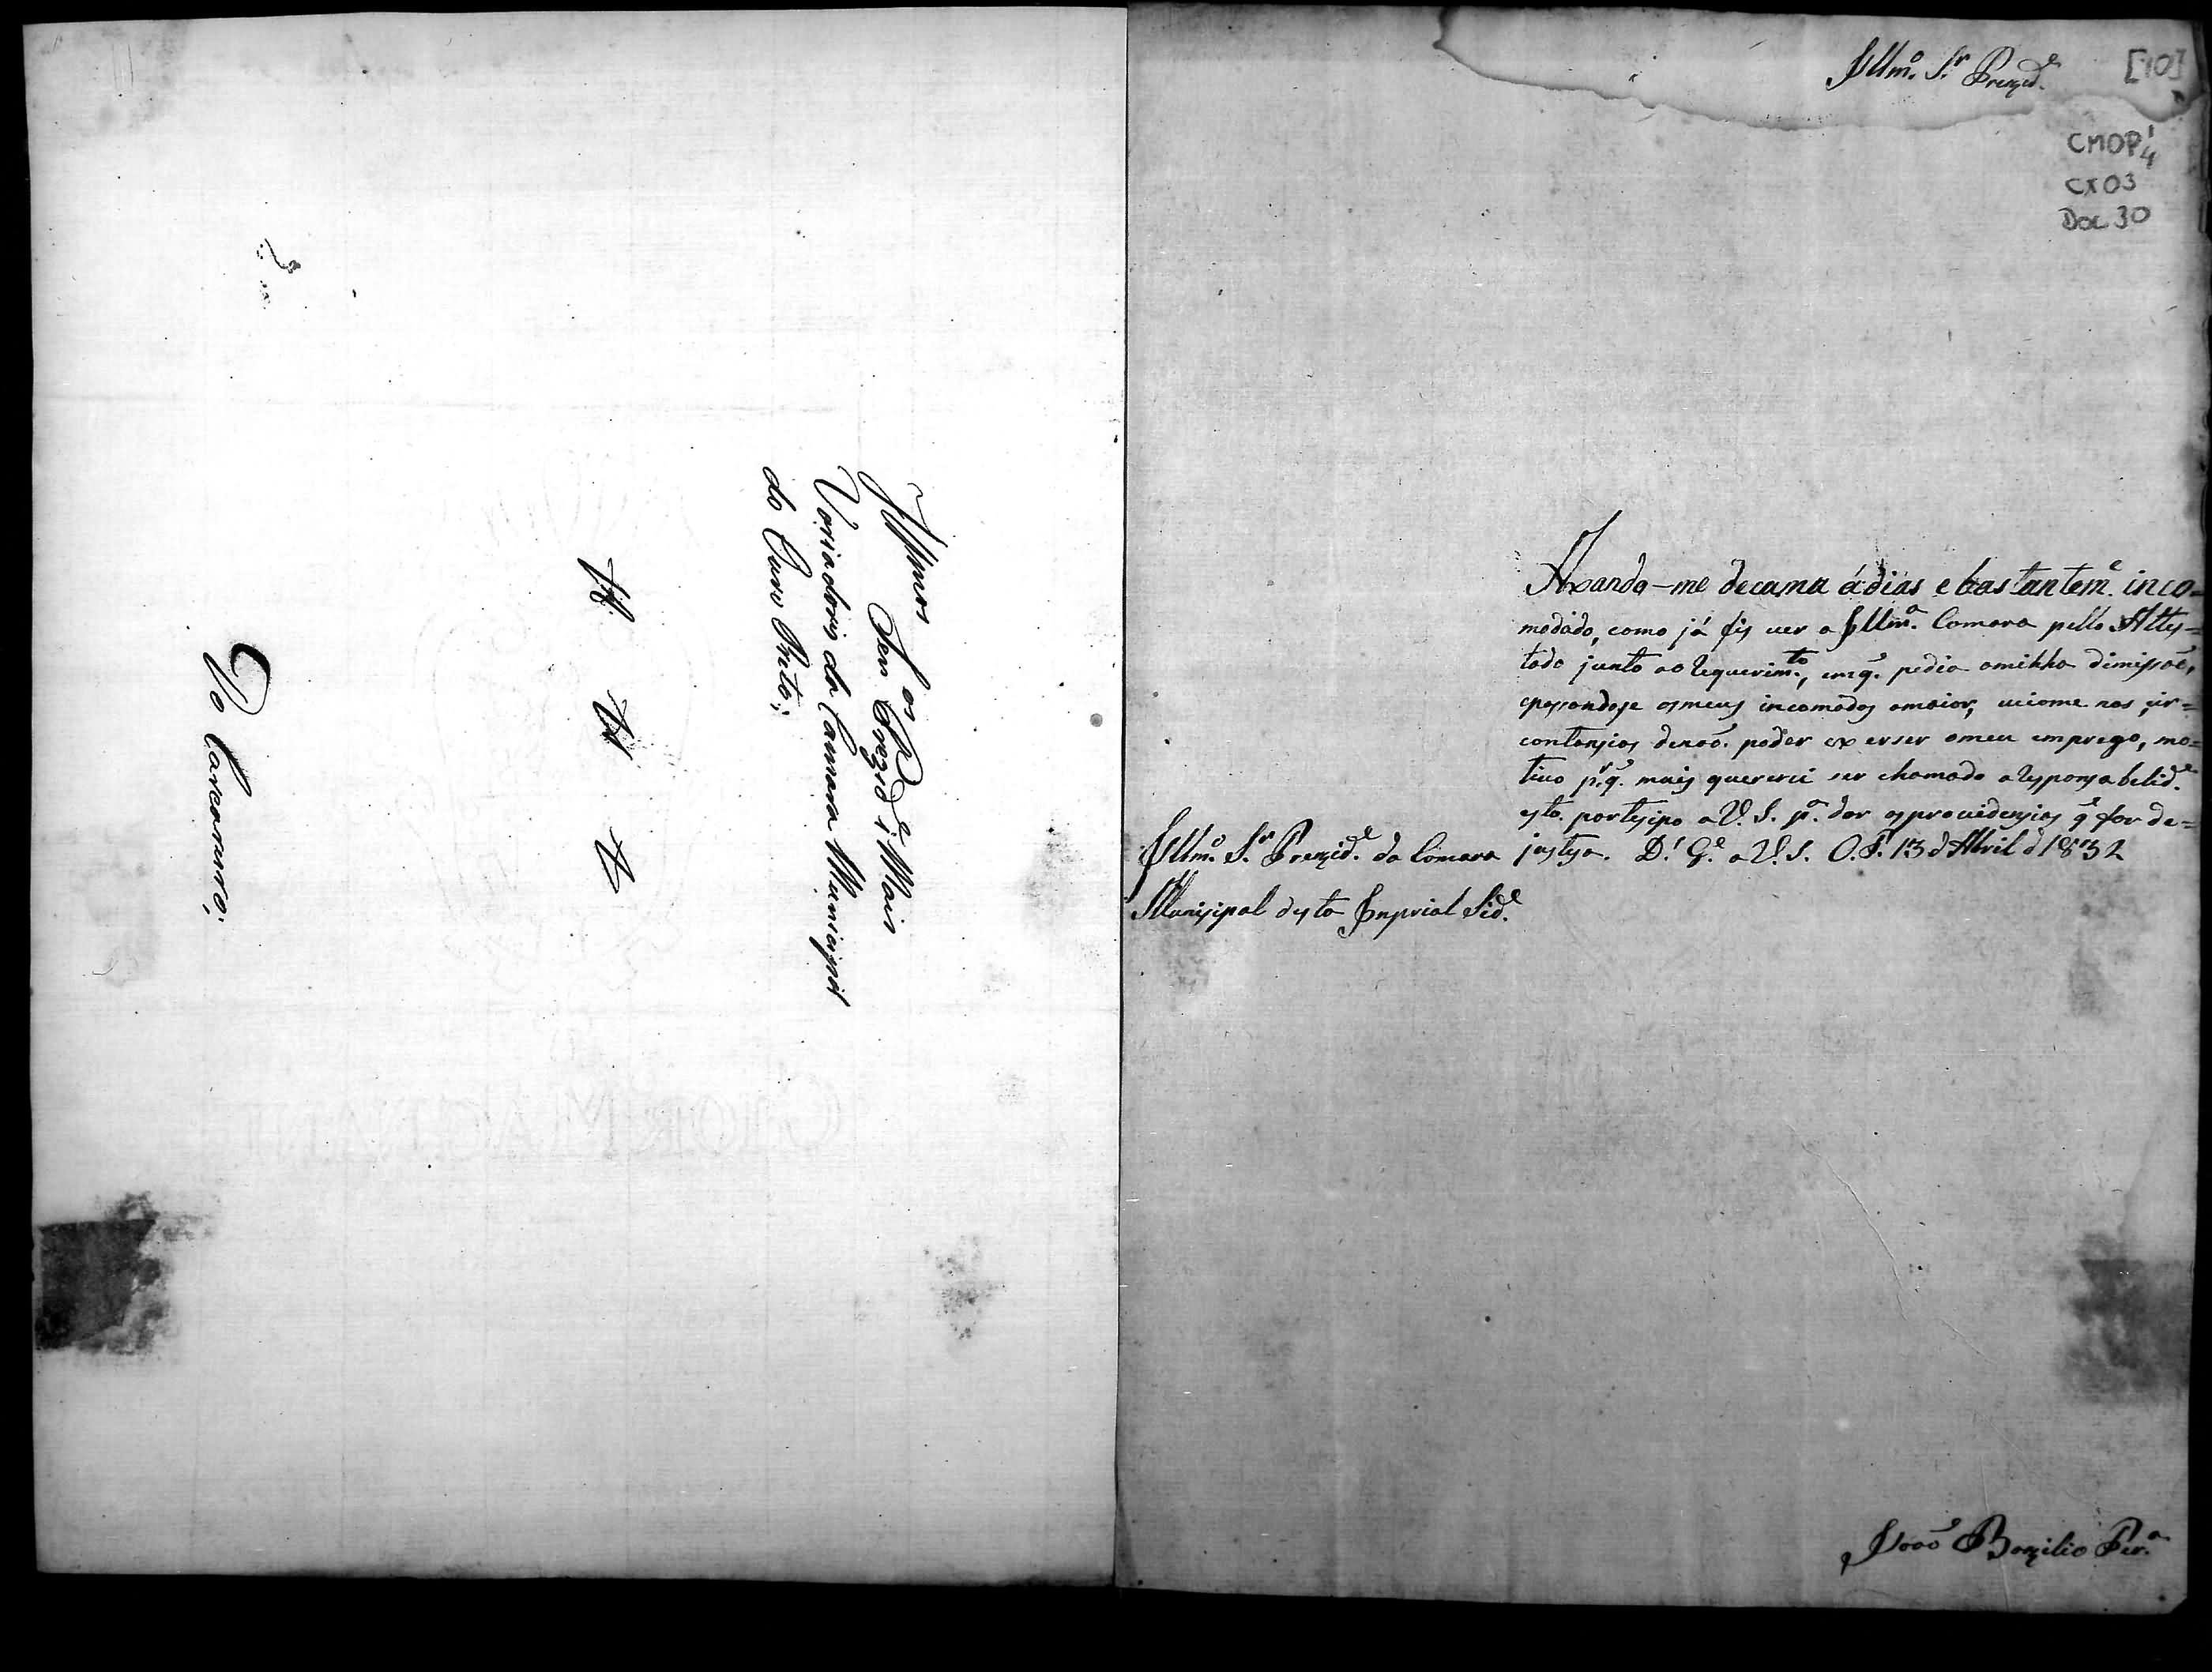 Illmos
Sen.os Prezid.e i Mais
Variadoris da Camara Municipál
do Ouro Preto;
Do Carcereiro;
Illm.o S.r Prezid.e
[10]
CMOP 1/4
CX 03
Doc 30
Axando-me decama ádias e bastantem.e inco=
modádo, como já fis ver a Illm.a Camara pello Attes=
tado junto ao Requerim.to, em q. pedia amihha dimissaõ,
epassandose osmeus incomodos amaior, veiome nas sir=
contansias denaõ poder exerser omeu emprego, mo=
tivo p.r q. mais quererei ser chamado a Responsabelid.e
esta partesipo a V. S. p.a dar asprovidensias q for de=
justisa. D.s G.e a V. S. O. P. 13 d Abril d 1832
Illm.o S.r Prezid.e da Camara
Munisipal desta Inprial Sid.e
Joaõ Bazilio Per.a